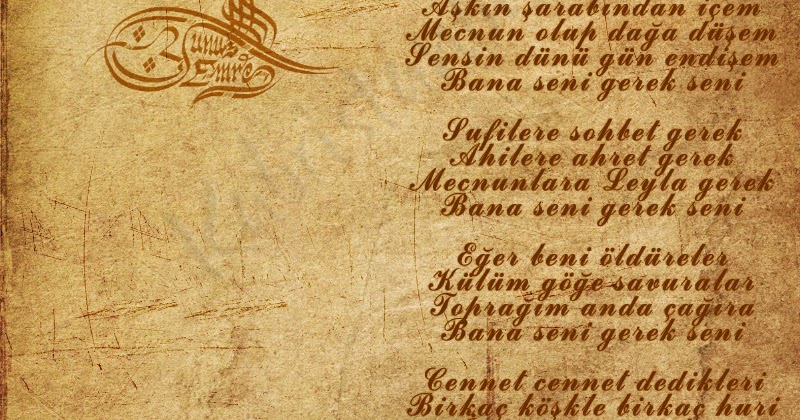 Yunus
Emre
Aşkın şarabından içem
Mecnun olup dağa düşem
Sensin dünü gün endişem
Bana seni gerek seni
Sufilere sohbet gerek
Ahilere ahret gerek
Mecnunlara Leyla gerek
Bana seni gerek seni
Eğer beni öldüreler
Külüm göğe savuralar
Toprağım anda çağıra
Bana seni gerek seni
Cennet cennet dedikleri
Birkaç köşkle birkaç huri